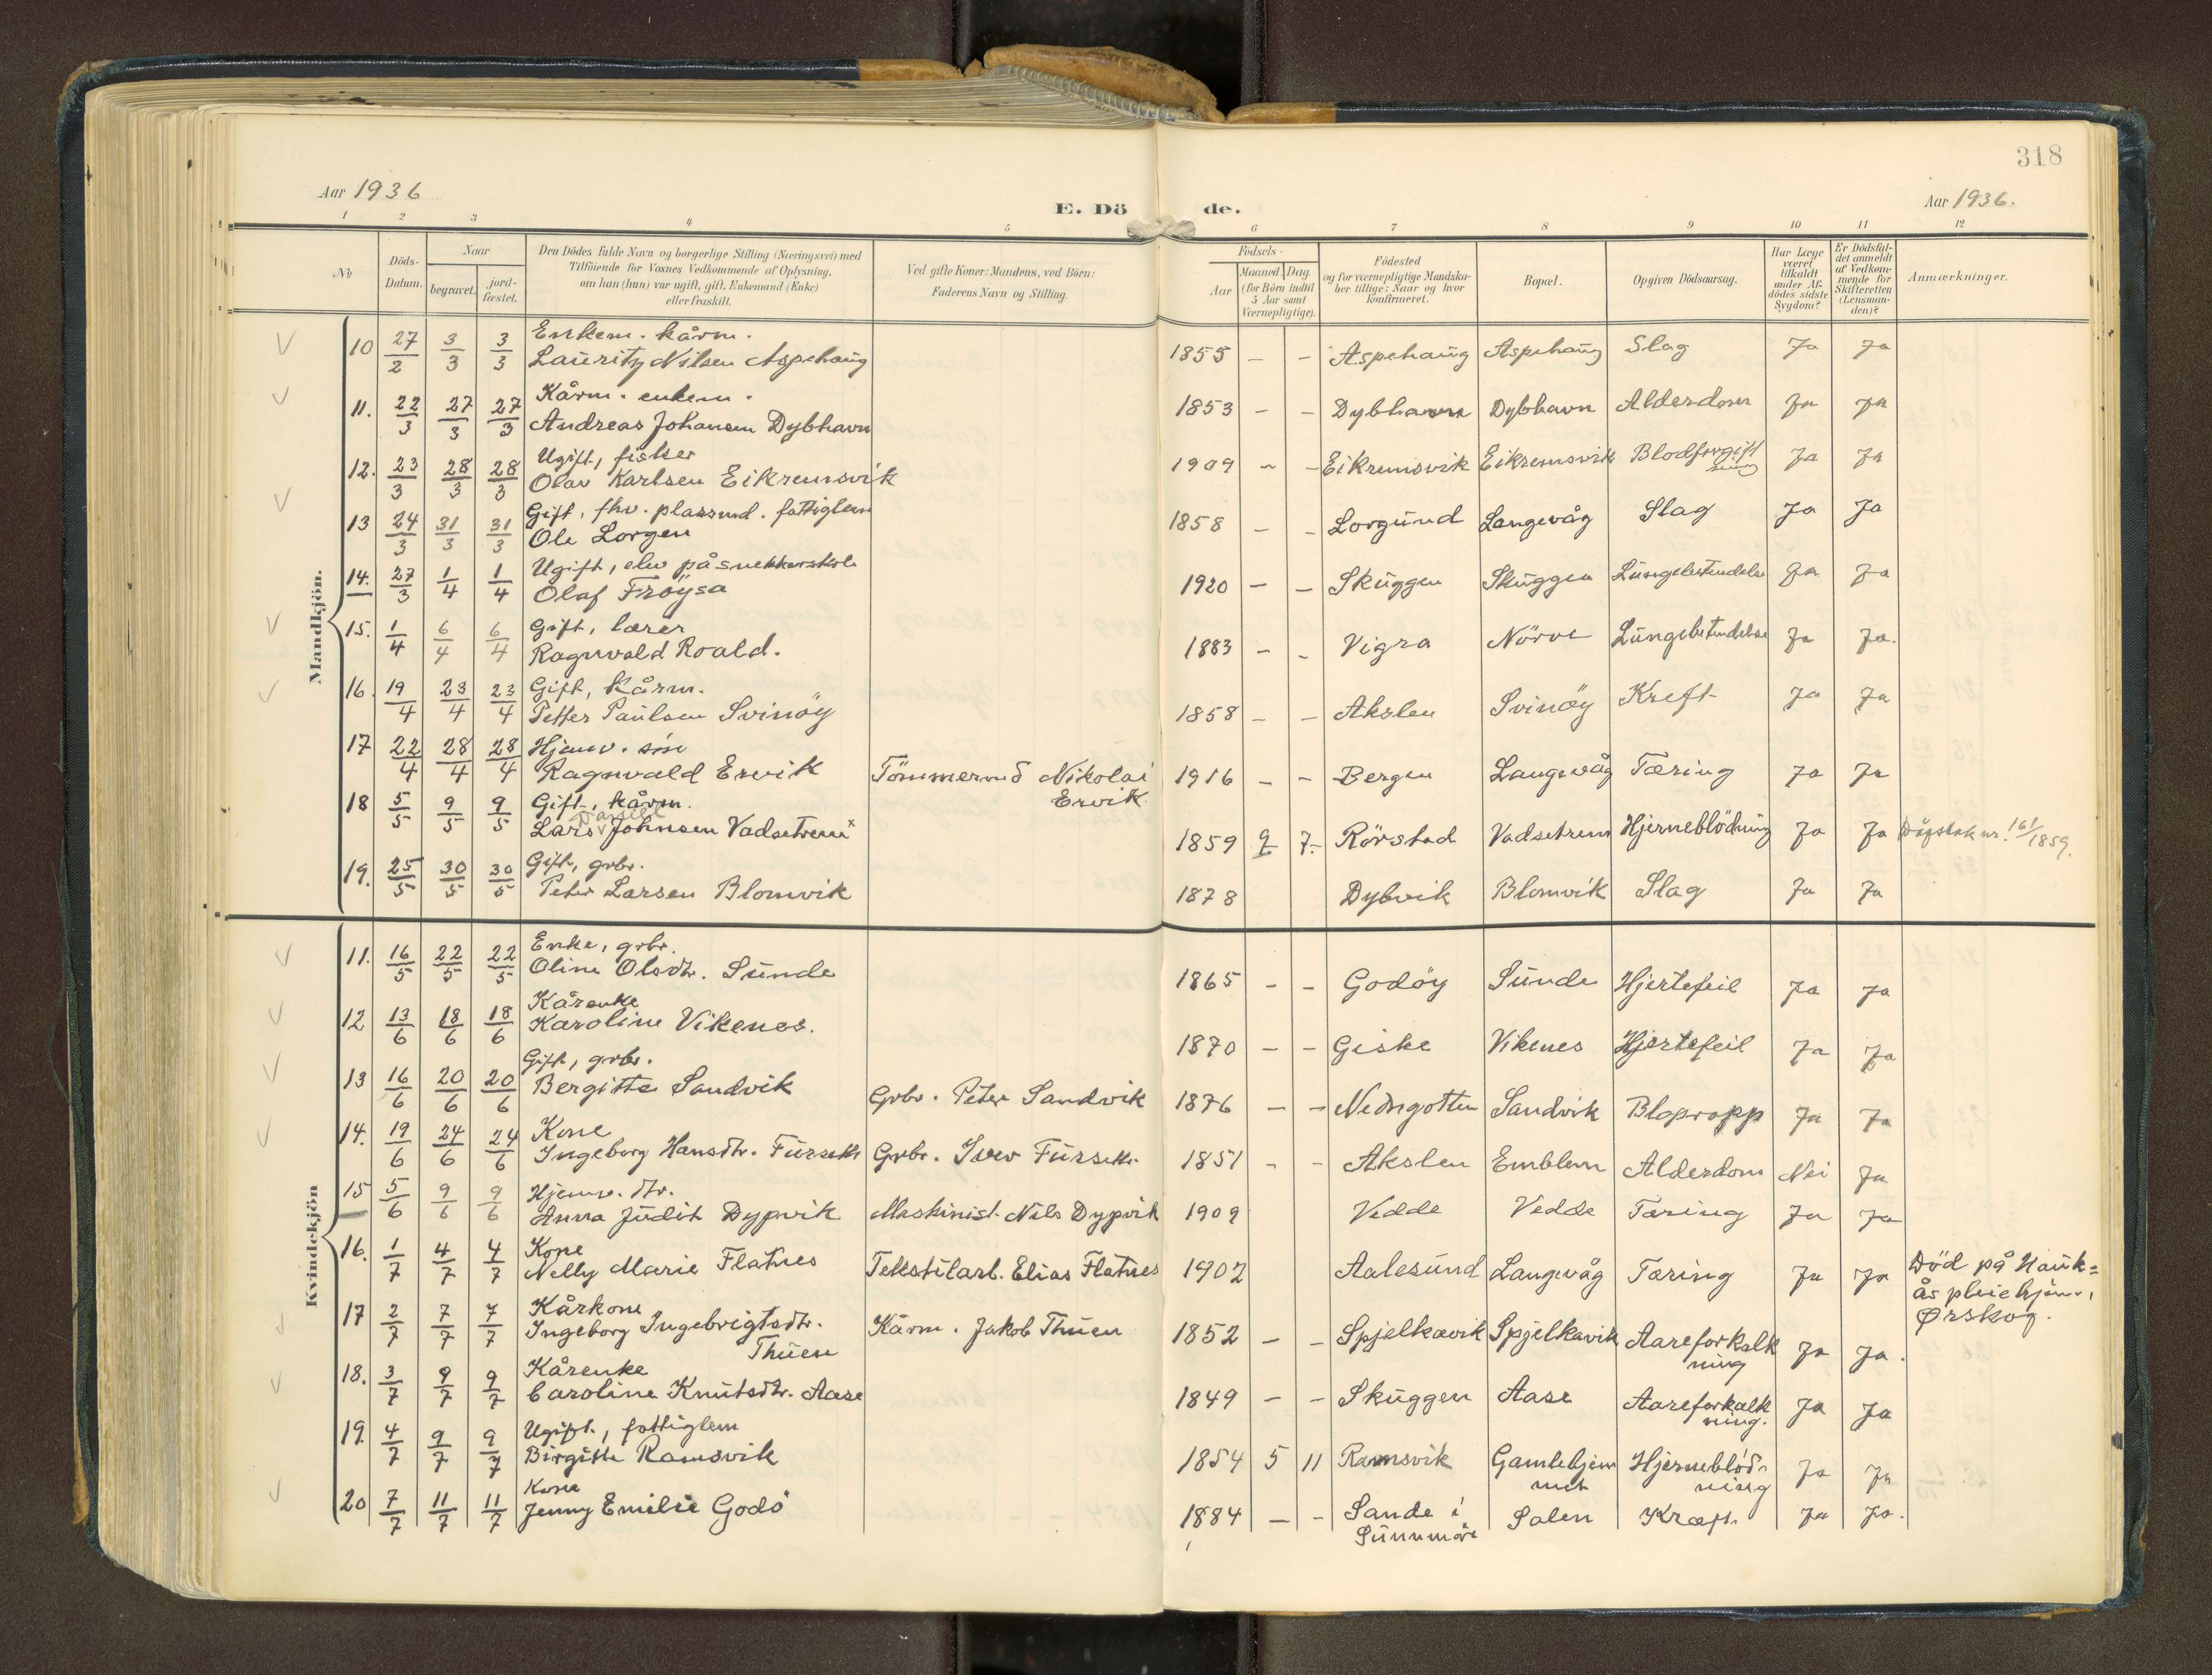 318
Aar 1936
E. Dö de.
Aar 1936.
1 2 3 4 5 6 7 8 9 10 11 12
No
Döds-Datum.
Naar
begravet.
jord-fæstet.
Den Dödes fulde Navn og borgerlige Stilling (Næringsvei) med
Tilföiende for Voxnes Vedkommende af Oplysning,
om han (hun) var ugift, gift, Enkemand (Enke)
eller fraskilt.
Ved gifte Koner: Mandens, ved Börn:
Faderens Navn og Stilling.
Födsels-
Aar
Maaned. Dag.
(for Börn indtil
5 Aar samt
Værnepligtige).
Födested
og for værnepligtige Mandska-
ber tillige: Naar og hvor
konfirmeret.
Bopæl.
Opgiven Dödsaarsag.
Har Læge
været
tilkaldt
under Af-
dödes sidste
Sygdom?
Er Dödsfal-
det anmeldt
af Vedkom-
mende for
Skifteretten
(Lensman-
den)?
Anmærkninger.
Mandkjön.
Enkem. kårm.
10 27/2 3/3 3/3 Lauritz Nilsen Aspehaug 1855 – – Aspehaug Aspehaug Slag Ja Ja
Kårm. enkem.
11. 22/3 27/3 27/3 Andreas Johansen Dybhavn 1853 – – Dybhavn Dybhavn Alderdom Ja Ja
Ugift, fisker
12. 23/3 28/3 28/3 Olav Karlsen Eikremsvik 1909 – – Eikremsvik Eikremsvik Blodforgift
ning Ja Ja
Gift, fhv. plassmd. fattiglem
13 24/3 31/3 31/3 Ole Lorgen 1858 – – Lorgund Langevåg Slag Ja Ja
Ugift, elev på snekkerskole
14. 27/3 1/4 1/4 Olaf Frøysa 1920 – – Skuggen Skuggen Lungebetendelse Ja Ja
Gift, lærer
15. 1/4 6/4 6/4 Ragnvald Roald. 1883 – – Vigra Nörve Lungebetendelse Ja Ja.
Gift, kårm.
16. 19/4 23/4 23/4 Petter Paulsen Svinöy 1858 – – Akslen Svinöy Kreft Ja Ja
Hjemv. sön
17 22/4 28/4 28/4 Ragnvald Ervik Tömmermd Nikolai
Ervik 1916 – – Bergen Langevåg Tæring Ja Ja
Gift, kårm.
Daniel
18 5/5 9/5 9/5 Lars Johnsen Vadsetrem x 1859 9 7. Rörstad Vadsetrem Hjerneblödning Ja Ja Dåpsbok nr. 161/1859.
Gift, grbr.
19. 25/5 30/5 30/5 Peter Larsen Blomvik 1878 Dybvik Blomvik Slag Ja Ja
Kvindekjön
Enke, grbr.
11. 16/5 22/5 22/5 Oline Olsdtr. Sunde 1865 – – Godöy Sunde Hjertefeil Ja Ja
Kårenke
12 13/6 18/6 18/6 Karoline Vikenes. 1870 – – Giske Vikenes Hjertefeil Ja Ja
Gift, grbr.
13 16/6 20/6 20/6 Bergitte Sandvik Grbr. Peter Sandvik 1876 – – Nedregotten Sandvik Blopropp Ja Ja
Kone
14. 19/6 24/6 24/6 Ingeborg Hansdtr. Fursette Grbr. Iver Fursette 1851 – – Akslen Emblem Alderdom Nei Ja
Hjemv. dtr.
15 5/6 9/6 9/6 Anna Judit Dypvik Maskinist Nils Dypvik 1909 Vedde Vedde Tæring Ja Ja
Kone
16. 1/7 4/7 4/7 Nelly Marie Flatnes Tekstilarb. Elias Flatnes 1902 Aalesund Langevåg Tæring Ja Ja Död på Hauk=
ås pleiehjem,
Ørskog.
Kårkone
17 2/7 7/7 7/7 Ingeborg Ingebrigtsdtr.
Thuen Kårm. Jakob Thuen 1852 – – Spjelkavik Spjelkavik Aareforkalk
ning Ja Ja.
Kårenke
18. 3/7 9/7 9/7 Caroline Knutsdtr. Aase 1849 – – Skuggen Aase Aareforkalk
ning. Ja Ja
Ugift, fattiglem
19. 4/7 9/7 9/7 Birgitte Ramsvik 1854 5 11 Ramsvik Gamlehjem
met Hjerneblöd-
ning Ja Ja
Kone
20 7/7 11/7 11/7 Jenny Emilie Godö 1884 – – Sande i
Sunnmöre Salen Kræft Ja Ja.